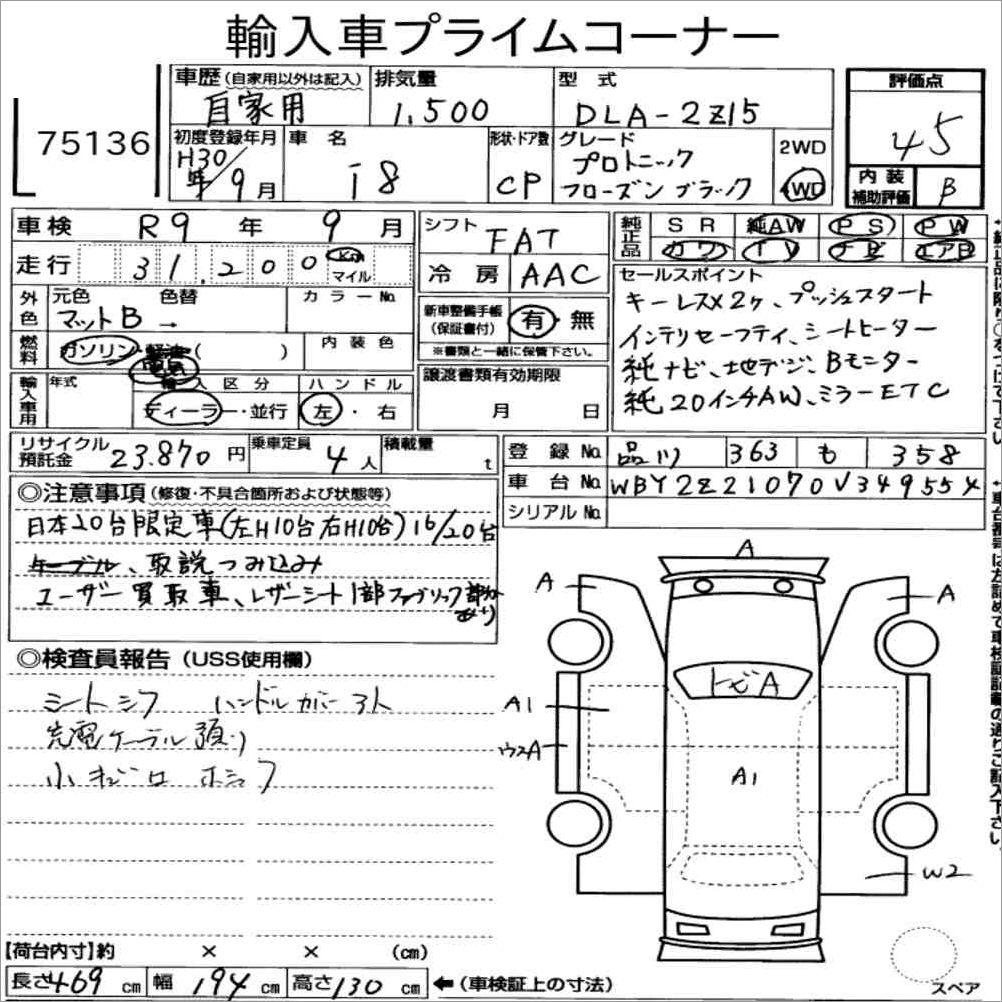 輸入車プライムコーナー
75136
車歴 (自家用以外は記入) 自家用
排気量 1,500
型式 DLA-2Z15
評価点 45
初度登録年月 H30年/9月
車名 i8
形状・ドア数 CP
グレード プロトニック
フローズンブラック
2WD
4WD
内装補助評価 B
車検 R9年 9月
シフト FAT
純正品 SR 純AW PS PW
カワ TV ナビ エアB
走行 31,200 Km マイル
冷房 AAC
セールスポイント
キーレス×2ヶ、プッシュスタート
インテリセーフティ、シートヒーター
純ナビ、地デジ、Bモニター
純20インチAW、ミラーETC
外色 元色 色替 カラーNo.
マットB →
新車整備手帳(保証書付) 有・無
※書類と一緒に保管下さい。
燃料 ガソリン・軽油( ) 内装色
電気
譲渡書類有効期限
月 日
輸入車用 年式 輸入区分 ハンドル
ディーラー・並行 左・右
リサイクル預託金 23,870円
乗車定員 4人
積載量 t
登録No. 品川 363 も 358
車台No. WBY2Z21070V349554
シリアルNo.
◎注意事項 (修復・不具合箇所および状態等)
日本20台限定車(左H10台右H10台)16/20台
ケーブル、取説つみ込み
ユーザー買取車、レザーシート1部ファブリック部分あり
◎検査員報告 (USS使用欄)
シートシワ ハンドルカバー
充電ケーブル預り
小キズ
A
A
A
トビA
A1
ウスA
A1
W2
スペア
【荷台内寸】約 × × (cm)
長さ469cm 幅194cm 高さ130cm ←(車検証上の寸法)